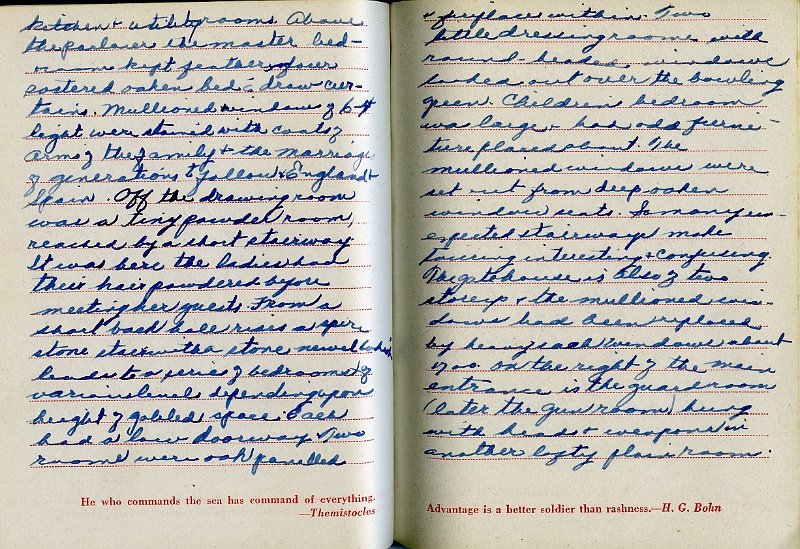 kitchen + utility rooms. Above
the parlour the master bed-
room kept feather four
postered oaken bed + draw cur-
tains. Mullioned window of 6-
light were stained with coats of
arms of the family + the marriage
of generations to follow + England +
Spain. Off the drawing room
was a tiny powder room,
reached by a short stairway.
It was here the ladies had
their hair powdered before
meeting her guests. From a
short back hall rises a
stone stair with a stone newel
leads to a series of bedrooms of
various level depending upon
height of gabled space. Each
had a low doorway. Two
rooms were oak panelled
He who commands the sea has command of everything.
—Themistocles
+ fireplace within. Two
little dressing rooms with
round-headed windows
looked out over the bowling
green. Children bedroom
was large + had odd furni-
ture placed about. The
mullioned windows were
set out from deep oaken
window seats. So many un-
expected stairways made
touring interesting + confusing.
The gatehouse is also of two
storeys + the mullioned win-
dows had been replaced
by heavy sash windows about
1700. On the right of the main
entrance is the guardroom
(later the gun room) hung
with heads + weapons in
another lofty plain room.
Advantage is a better soldier than rashness.—H. G. Bohn